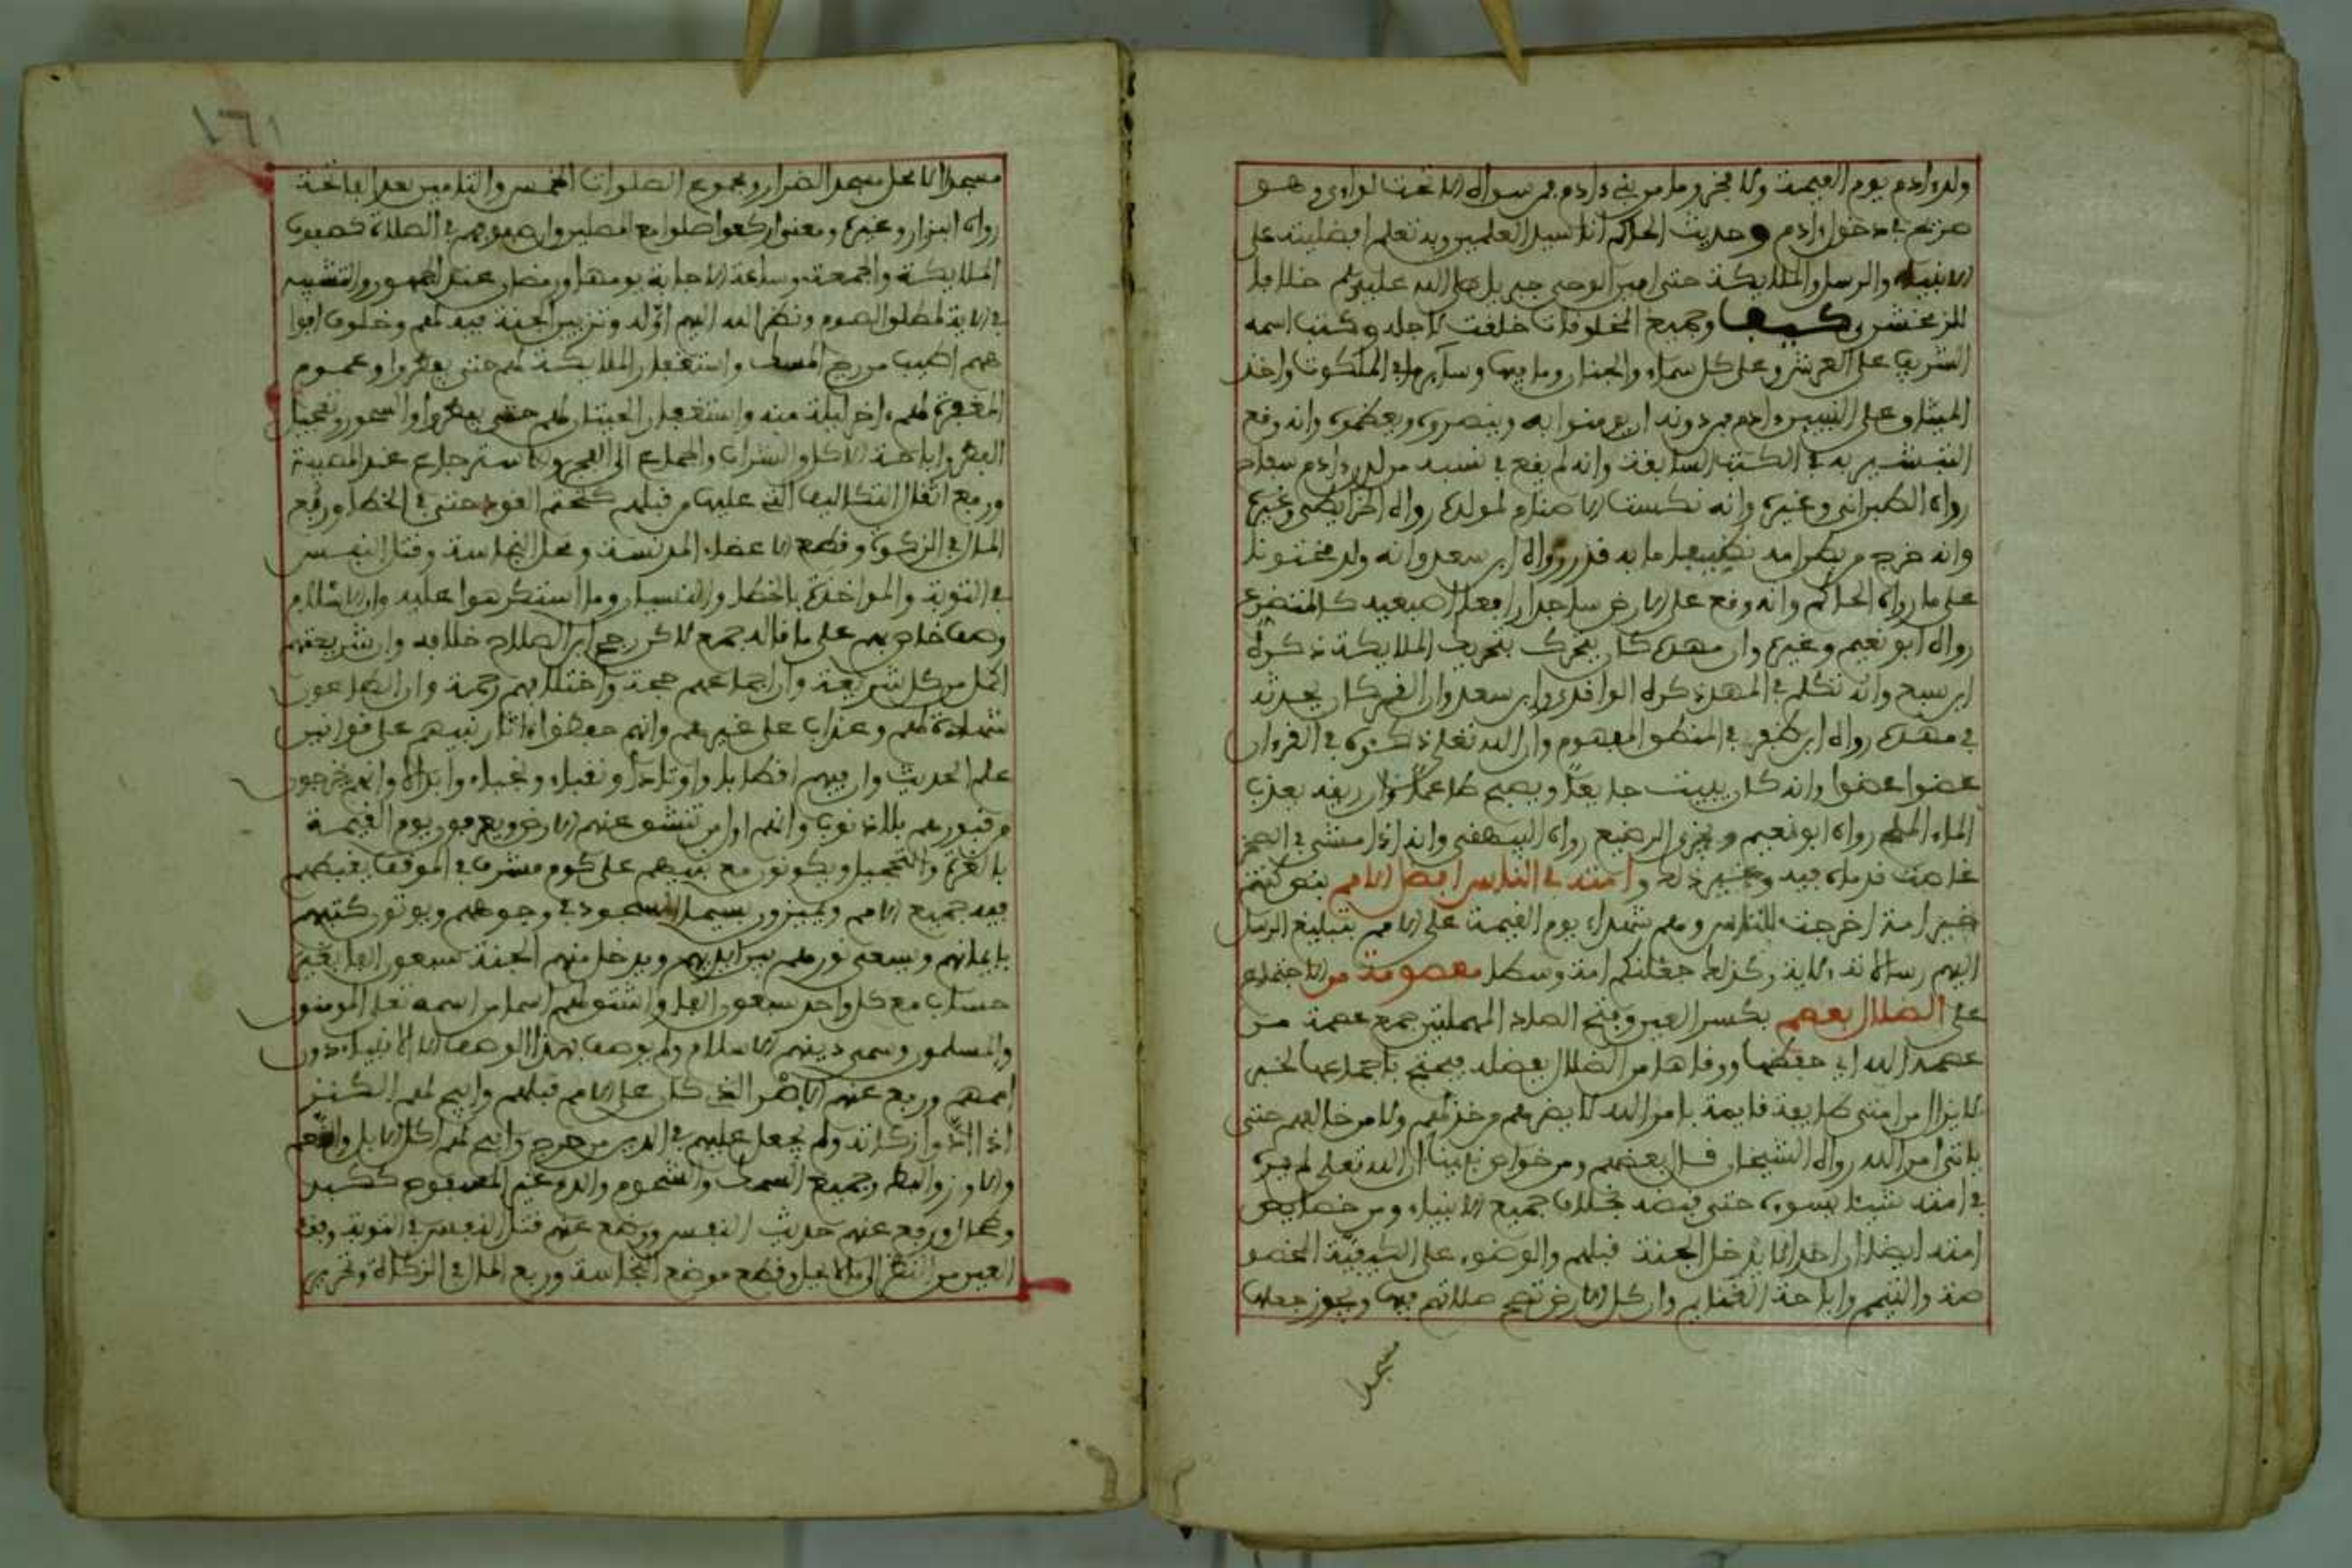 ولد ءادم يوم القيمة ولا فخر وما من بني ءادم فمن سواه الا تحت لواءي وهو
صريح في دخول ءادم وحديث الحاكم انا سيد العلمين وبه تعلم افضليته على
الانبياء والرسل والملايكة حتى امين الوحي جبريل صلى الله عليهم خلافا
للزمخشري كيف وجميع المخلوقات خلقت لاجله وكتب اسمه
الشريف على العرش وعلى كل سماء والجنان وما فيها وساير ما في الملكوت واخذ
الميثاق على النبيين ءادم فمن دونه ان يومنوا به وينصروه ويعظموه وانه وقع
التبشير به في الكتب السابقة وانه لم يقع في نسبه من لدن ءادم سفاح
رواه الطبراني وغيره وانه نكست الاصنام لمولده رواه الخرايطي وغيره
وانه خرج من بطن امه نظيفا ما به قذر رواه ابن سعد وانه ولد مختونا
على ما رواه الحاكم وانه وقع على الارض ساجدا رافعا اصبعيه كالمتضرع
رواه ابو نعيم وغيره وان مهده كان يتحرك بتحريك الملايكة ذكره
ابن سبع وانه تكلم في المهد ذكره الواقدي وابن سعد وان القمر كان يحدثه
في مهده رواه ابن طغر في المنطق المفهوم وان الله تعلى ذكره في القرءان
عضوا عضوا وانه كان يبيت جايعا ويصبح طاعما وان ريقه يعذب
الماء الملح رواه ابو نعيم ويجزي الرضيع رواه البيهقي وانه اذا مشى في الصخر
غاصت قدماه فيه وغير ذلك وامته في الناس افضل الامم بنص كنتم
خير امة اخرجت للناس وهم شهداء يوم القيمة على الامم بتبليغ الرسل
اليهم رسالاته الاية وكذلك جعلنكم امة وسطا معصومة من الاجتماع
على الضلال بعصم بكسر العين وفتح الصاد المهملتين جمع عصمة من
عصمه الله اي حفظها ووقاها من الضلال بفضله فيحتج باجماعها لخبر
لا يزال من امتي طايفة قايمة بامر الله لا يضرهم من خذلهم ولا من خالفهم حتى
ياتي امر الله رواه الشيخان قال بعضهم ومن خواص نبينا ان الله تعلى لم يره
في امته شيئا يسوءه حتى قبضه بخلاف جميع الانبياء ومن خصايص
امته ايضا ان احدا لا يدخل الجنة قبلهم والوضوء على الكيفية المخصو
صة والتيمم واباحة الغنايم وان كل الارض تصح صلاتهم فيها ويجوز جعلها
مسجدا
١٦١
مسجدا الا محل مسجد الضرار ومجموع الصلوات الخمس والتامين بعد الفاتحة
رواه البزار وغيره ومعنى اركعوا صلوا مع المصلين وصفوفهم في الصلاة كصفوف
الملايكة والجمعة وساعة الاجابة يومها ورمضان عند الجمهور والتشبيه
في الاية لمطلق الصوم ونظر الله اليهم اوله وتزيين الجنة فيه لهم وخلوف افوا
ههم اطيب من ريح المسك واستغفار الملايكة لهم حتى يفطروا وعموم
المغفرة لهم ءاخر ليلة منه واستغفار الحيتان لهم حتى يفطروا والسحور وتعجيل
الفطر واباحة الاكل والشراب والجماع الى الفجر والاسترجاع عند المصيبة
ورفع اثقال التكاليف التي على من قبلهم كتحتم القود حتى في الخطا وربع
المال في الزكوة وقطع الاعضاء المدنسة ومحل النجاسة وقتل النفس
في التوبة والمواخذة بالخطا والنسيان وما استكرهوا عليه وان الاسلام
وصف خاص بهم على ما قاله جمع لاكن رجح ابن الصلاح خلافه وان شريعتهم
اكمل من كل شريعة وان اجماعهم حجة واختلافهم رحمة وان الطاعون
شهادة لهم وعذاب على غيرهم وانهم حفظوا ءاثار نبيهم على قوانين
علم الحديث وان فيهم اقطابا واوتادا ونقباء ونجباء وابدالا وانهم يخرجون
من قبورهم بلا ذنوب وانهم اول من تنشق عنهم الارض ويعرفون يوم القيمة
بالغرة والتحجيل ويكونون مع نبيهم على كوم مشرف في الموقف يغبطهم
فيه جميع الامم ويميزون بسيما السجود في وجوههم ويوتون كتبهم
بايمانهم ويسعى نورهم بين ايديهم ويدخل منهم الجنة سبعون الفا بغير
حساب مع كل واحد سبعون الفا واشتق لهم اسما من اسمه تعلى المومنون
والمسلمون وسمي دينهم الاسلام ولم يوصف بهذا الوصف الا الانبياء دون
اممهم ورفع عنهم الاصر الذي كان على الامم قبلهم وابيح لهم الكنز
اذا ادوا زكاته ولم يجعل عليهم في الدين من حرج وابيح لهم اكل الابل والنعم
والاوز والبط وجميع السمك والشحوم والدم غير المسفوح ككبد
وطحال ورفع عنهم حديث النفس ووضع عنهم قتل النفس في التوبة وفقء
العين من النظر الى ما لا يحل وقطع موضع النجاسة وربع المال في الزكاة وتحريم